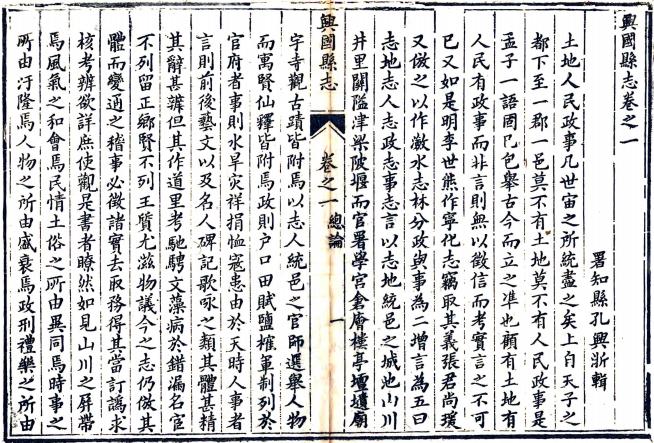 興國縣志卷之一
署知縣孔興浙輯
土地人民政事凡世宙之所統盡之矣上自天子之
都下至一郡一邑莫不有土地莫不有人民政事是
孟子一語固已包舉古今而立之準也顧有土地有
人民有政事而非言則無以徵信而考實言之不可
已又如是明李世熊作寧化志竊取其義張君尚瑗
又倣之以作瀲水志林分政與事為二增言為五曰
志地志人志政志事志言以志地統邑之城池山川
井里關隘津梁陂堰而官署學宫倉廥樓亭壇壝廟
興國縣志
卷之一
總論
一
宇寺觀古蹟皆附焉以志人統邑之官師選舉人物
而寓賢仙釋皆附焉政則户口田賦鹽榷軍制列於
官府者事則水旱灾祥捐恤寇患由於天時人事者
言則前後藝文以及名人碑記歌咏之類其體甚精
其辭甚辨但其作道里考馳騁文藻病於錯漏名宦
不列留正鄉賢不列王質尤滋物議今之志仍倣其
體而變通之稽事必徵諸實去取務得其當訂譌求
核考辨欲詳庶使觀是書者瞭然如見山川之屏帶
焉風氣之和會焉民情土俗之所由異同焉時事之
所由汙隆焉人物之所由盛衰焉政刑禮樂之所由